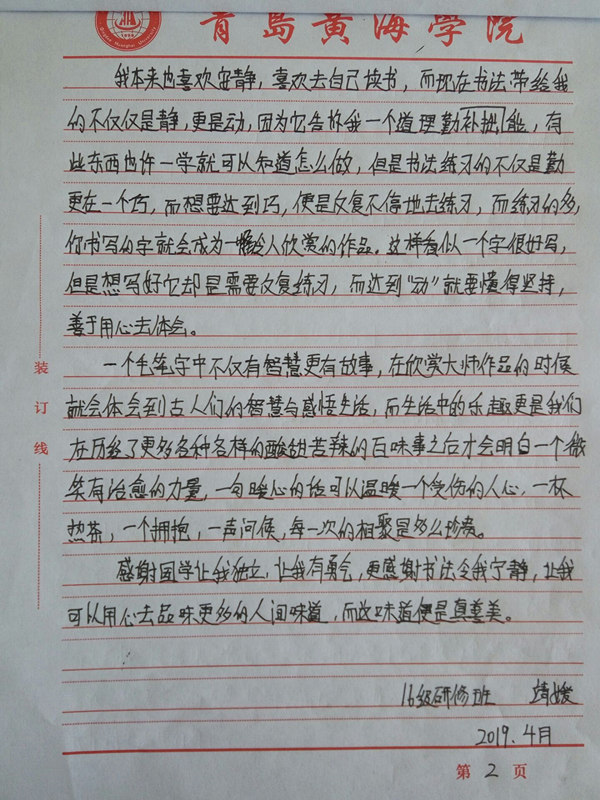 青岛黄海学院
我本来也喜欢安静，喜欢去自己读书，而现在书法带给我
的不仅仅是静，更是动，因为它告诉我一个道理勤补拙能，有
些东西也许一学就可以知道怎么做，但是书法练习的不仅是勤
更在一个巧，而想要达到巧，便是反复不停地去练习，而练习的多，
你书写的字就会成为一幅令人欣赏的作品。这样看似一个字很好写，
但是想写好它却是需要反复练习，而达到“动”就要懂得坚持，
善于用心去体会。
一个毛笔字中不仅有智慧更有故事，在欣赏大师作品的时候
就会体会到古人们的智慧与感悟生活，而生活中的乐趣更是我们
在历经了更多各种各样的酸甜苦辣的百味事之后才会明白一个微
笑有治愈的力量，一句暖心的话可以温暖一个受伤的人心，一杯
热茶，一个拥抱，一声问候，每一次的相聚是多么珍贵。
感谢国学让我独立，让我有勇气，更感谢书法令我宁静，让我
可以用心去品味更多的人间味道，而这味道便是真善美。
16级研修班 靖媛
2019.4月
第2页
装
订
线